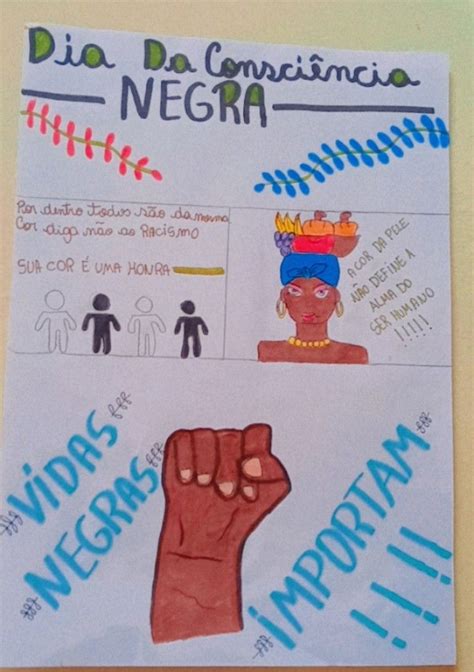 Dia Da Consciência
NEGRA
Por dentro todos são da mesma
Cor diga não ao Racismo
SUA COR É UMA HONRA
A COR DA PELE
NÃO DEFINE A
ALMA DO
SER HUMANO
!!!!!
VIDAS
NEGRAS
IMPORTAM
!!!!